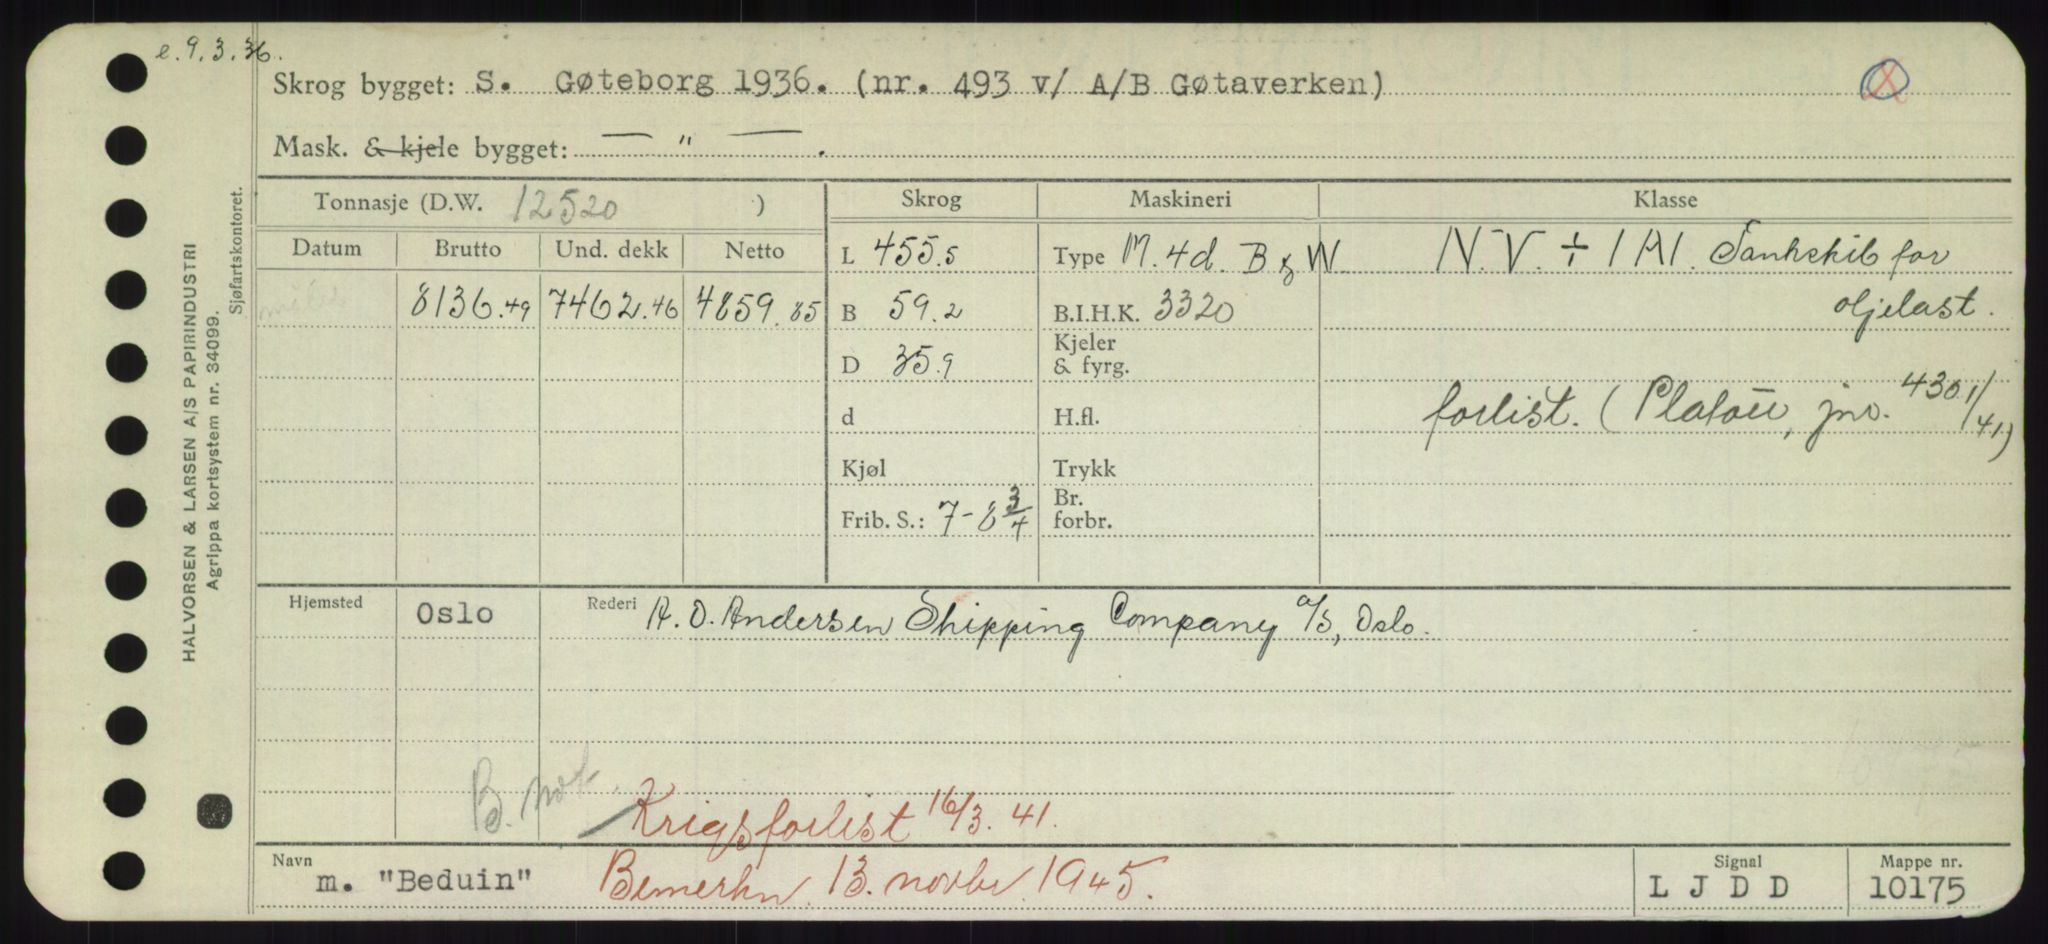 e. 9.3.36.
Skrog bygget: S. Gøteborg 1936. (nr. 493 v/ A/B Gøtaverken)
Mask. & kjele bygget: — " — .
Tonnasje (D.W. 12520 ) Skrog Maskineri Klasse
Datum Brutto Und. dekk Netto L 455.5 Type M. 4d. B & W. N.V. ÷ 1A1. Tankskib for
8136.49 7462.46 4859.85 B 59.2 B.I.H.K. 3320 oljelast.
D 35.9 Kjeler & fyrg.
d H.fl. forlist. (Platou, jnr. 4301/41)
Kjøl Trykk
Frib. S.: 7-8 3/4 Br. forbr.
Hjemsted Oslo Rederi A. O. Andersen Shipping Company a/s, Oslo.
B. not.
Krigsforlist 16/3. 41.
Navn m. "Beduin" Bemerkn. 13. novbr. 1945. Signal L J D D Mappe nr. 10175
HALVORSEN & LARSEN A/S PAPIRINDUSTRI
Agrippa kortsystem nr. 34099.
Sjøfartskontoret.